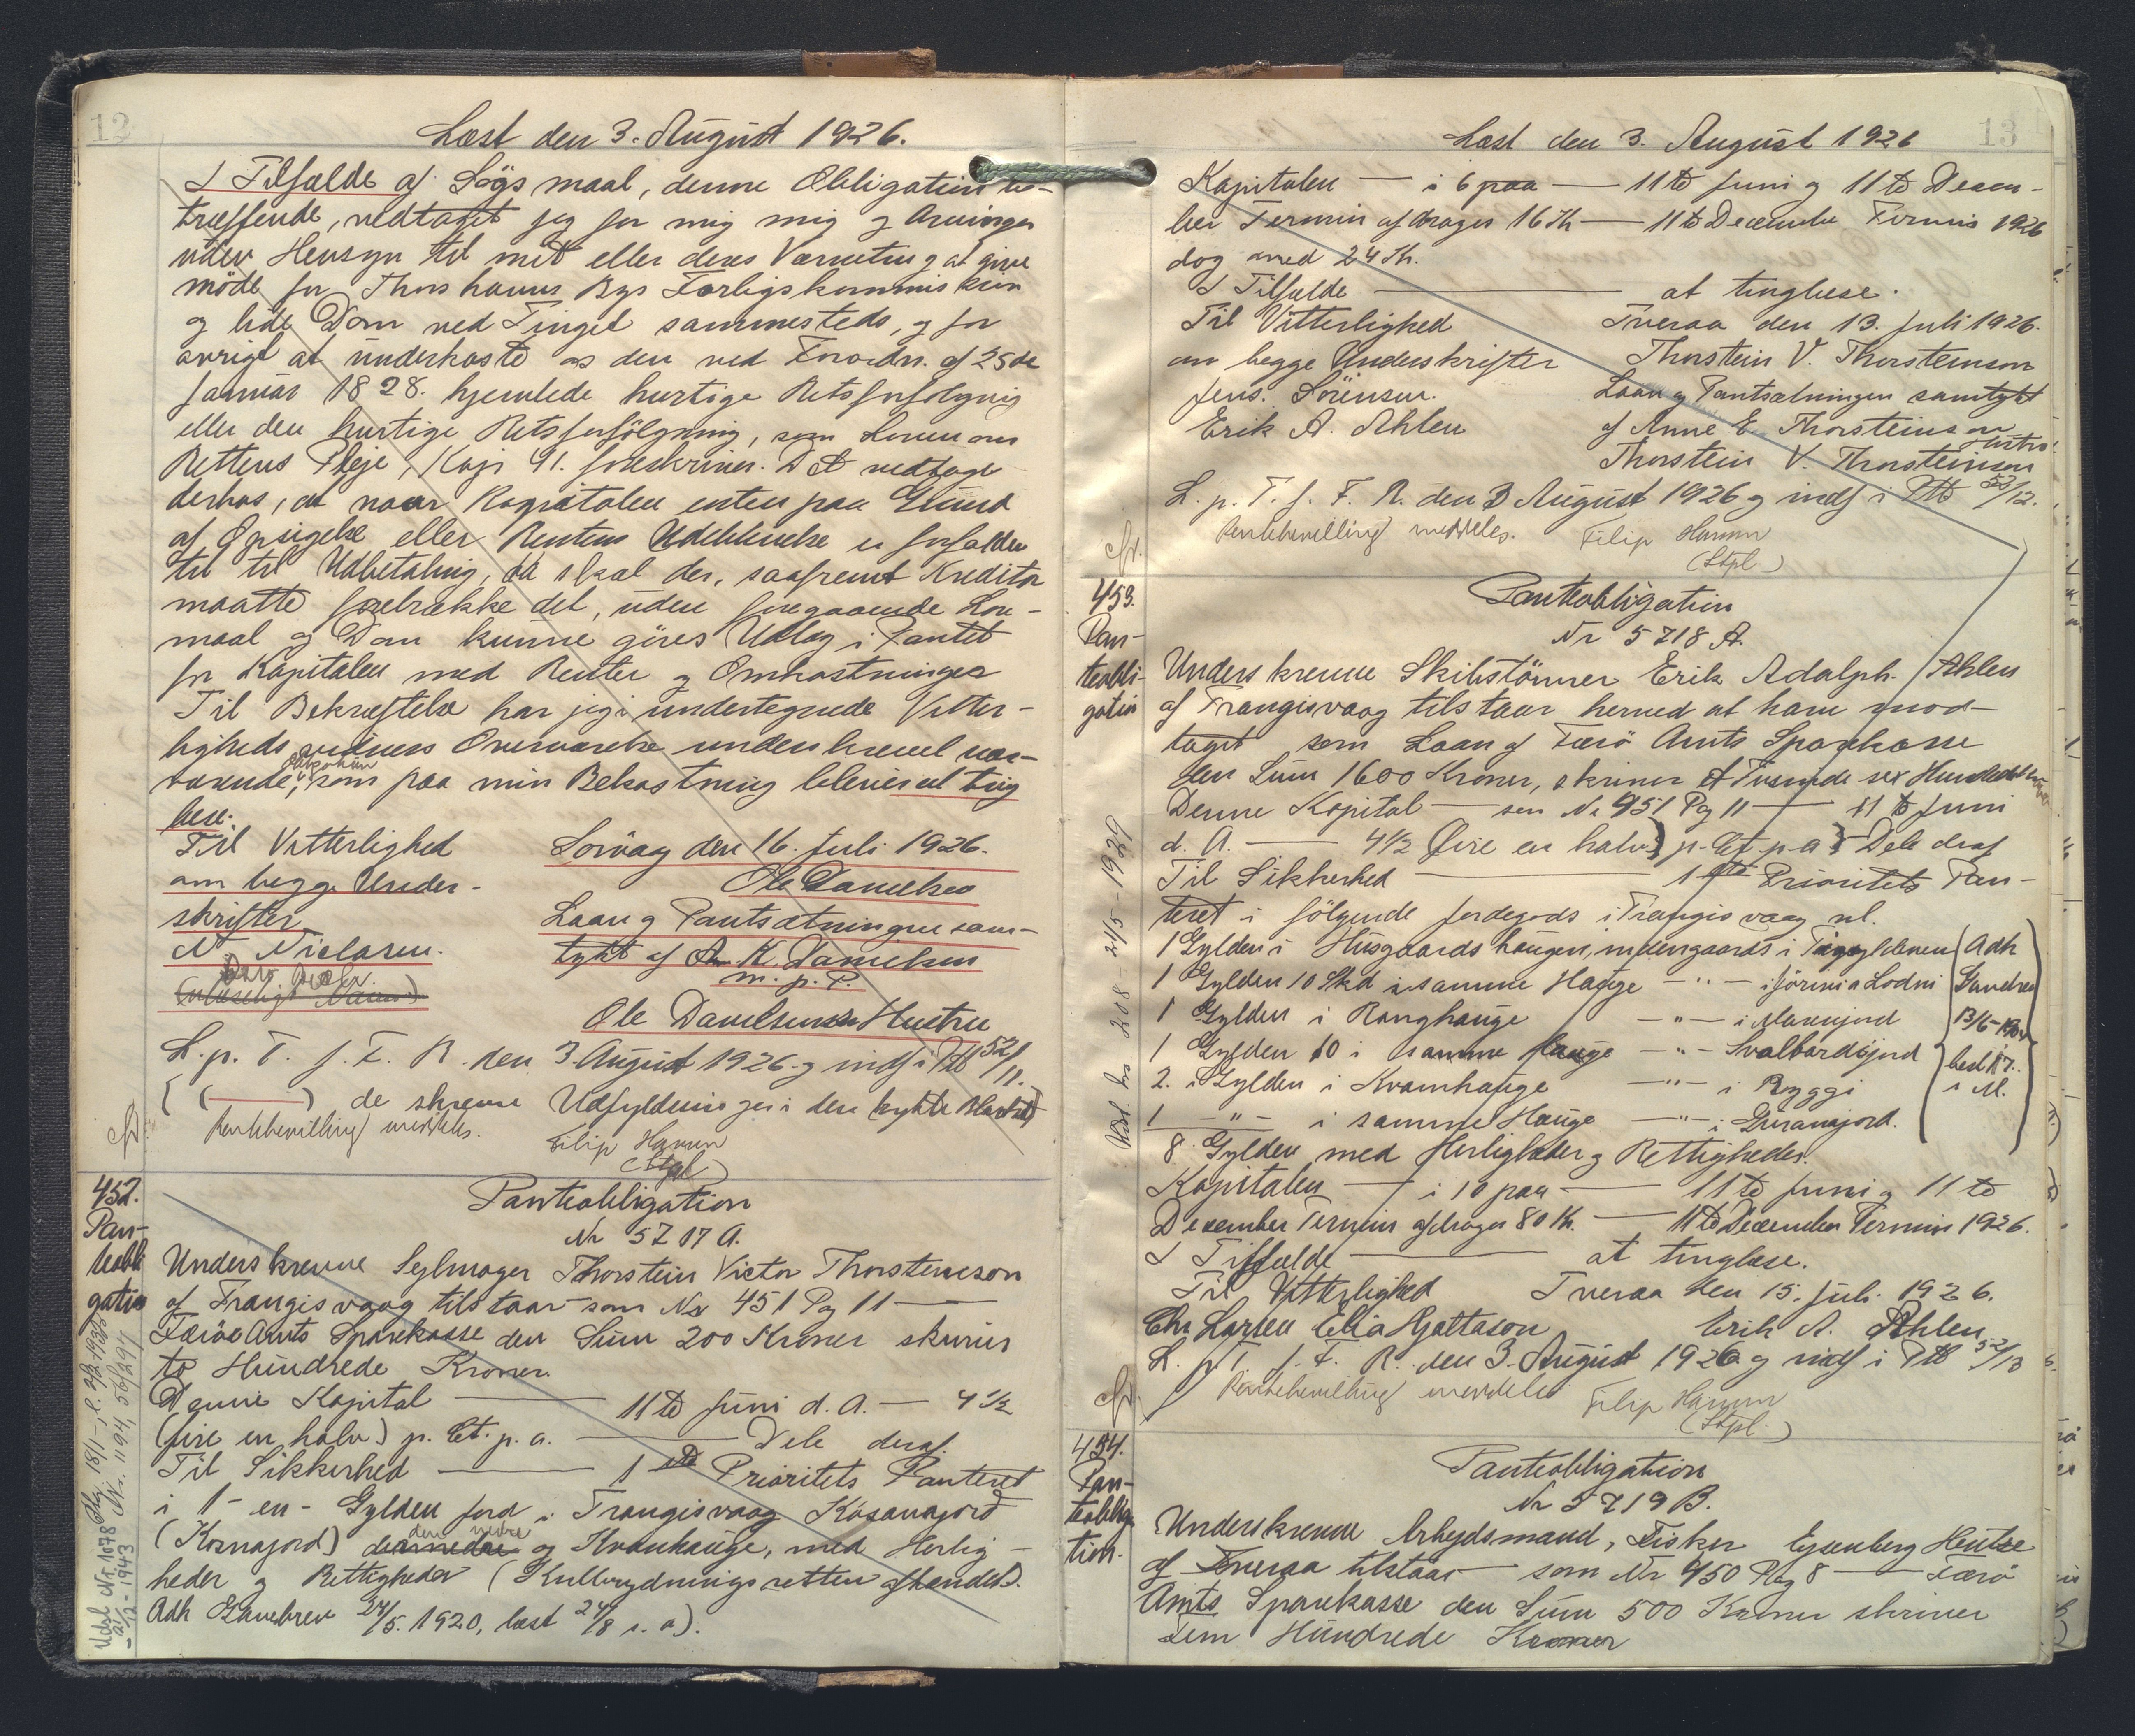 12
Læst den 3. August 1926.
I Tilfælde af Søgsmaal, denne Obligation be-
træffende, vedtaget jeg for mig mig og Arvinger
uden Hensyn til mit eller deres Værneting at give
möde for Thorshavns Bys Forligskommiskion
og lide Dom ved Tinget sammesteds, og for
øvrigt at underkaste os den ved Forordn. af 25de
Januar 1828. hjemlede hurtige Retsforfølgning
eller den hurtige Retsforfölgning, som Loven om
Rettens Pleje, Kap. 41. foreskriver. Det vedtages
derhos, at naar Kapitalen enten paa Grund
af Opsigelse eller Rentens Udeblivelse er forfalden
til til Udbetaling, da skal der, saafremt Kreditor
maatte foretrække det, uden foregaaende Lov-
maal og Dom kunne göres Udlæg i Pantet
for Kapitalen med Renter og Omkostninger
Til Bekræftelse har jeg i undertegnede Vitter-
lighedsvidners Overværelse underskrevet nær-
værende, som paa min Bekostning bliver at ting
læse.
Til Vitterlighed
om begge Under-
skrifter
N. Niclasen.
Sörvag den 16. Juli 1926.
Ole Danielsen
Laan og Pantsætningen sam-
tykt af An. K. Danielsen
m. p. P.
Ole Danielsens Hustru
L. p. T. f. F. R. den 3. August 1926 og indf i Ptb 52/11.
{ ( ) de skrevne Udfyldninger i den trykte Blanket}
Rentebevilling meddeles. Filip Hamm
(Stpl)
452.
Pan-
teobli
gation
Panteobligation
Nr 5717 A.
Underskrevne Sejlmager Thorstein Victor Thorsteinson
af Trangisvaag tilstaar som Nr 451 Pag 11 —
Færöe Amts Sparekasse den Sum 200 Kroner skriver
to Hundrede Kroner.
Denne Kapital — 11te Juni d. A. — 4 1/2
(fire en halv) p. Ct. p. a. — Dele deraf.
Til Sikkerhed — 1ste Prioritets Panteret
i 1 - en - Gylden Jord i Trangisvaag Kosanajord
den nedre
(Kosnajord) og Kvanhauge, med Herlig-
heder og Rettigheder (Kulbrydningsretten afhændet).
Adk Gavebrev 24/5. 1920, læst 24/8 s. a).
Udsl Nr. 1078
13
Læst den 3. August 1926
Kapitalen — i 6 paa — 11te Juni og 11te Decem-
ber Termin afdrages 16 Kr — 11te December Termin 1926
dog med 24 Kr.
I Tilfælde — at tinglæse.
Til Vitterlighed
om begge Underskrifter
Jens. Sörensen.
Erik A. Ahlen
Tveraa den 13. Juli 1926.
Thorstein V. Thorsteinson
Laan og Pantsætningen samtykt
af Anne E. Thorsteinson
Hustru
Thorstein V. Thorsteinson
L. p. T. f. F. R. den 3 August 1926 og indf i Ptb 52/12.
Rentebevilling meddeles. Filip Hamm
(Stpl.)
453.
Pan-
teobli-
gation
Panteobligation
Nr 5718 A.
Underskrevne Skibstömrer Erik Adalph. Ahlen
af Trangisvaag tilstaar herved at have mod-
taget som Laan af Færö Amts Sparekasse
den Sum 1600 Kroner, skriver et Tusinde sex Hundrede Kroner
Denne Kapital — som Nr 451 Pag 11 — 11te Juni
d. A. — 4 1/2 (fire en halv) p. Ct. p. a. — Dele deraf
Til Sikkerhed — 1ste Prioritets Pan-
teret i fölgende Jordegods i Trangisvaag nl.
1 Gylden i Husgaards haugen, indengaards i
1 Gylden 10 Skd i samme Hauge — " — i
1 Gylden i Ranghauge — " — i
1 Gylden 10 i samme Hauge — " — Svalbardsjord
2. Gylden i Kvamhauge — " — i Ryggi
1 — " — i samme Hauge — " — i
(Adk
Gavebrev
13/6-
læst 17.
i Al.
8 Gylden med Herligheder og Rettigheder.
Kapitalen — i 10 paa — 11te Juni og 11te
December Termin afdrages 80 Kr. — 11te December Termin 1926.
I Tilfælde — at tinglæse.
Til Vitterlighed
Tveraa den 15. Juli 1926.
Chr Larsen Elia Hjaltason
Erik A. Ahlen
L. p. T. f. F. R. den 3. August 1926 og indf i Ptb 52/13
Rentebevilling meddeles Filip Hamm
(Stpl.)
Udsl. hrs 208 - 21/5 - 1929
454.
Pan-
teobliga
tion.
Panteobligation
Nr 5719 B.
Underskrevne Arbejdsmand, Fisker Eysenberg Hentze
af Tveraa tilstaar — som Nr 450 Pag 8 — Færö
Amts Sparekasse den Sum 500 Kroner skriver
Fem Hundrede Kroner